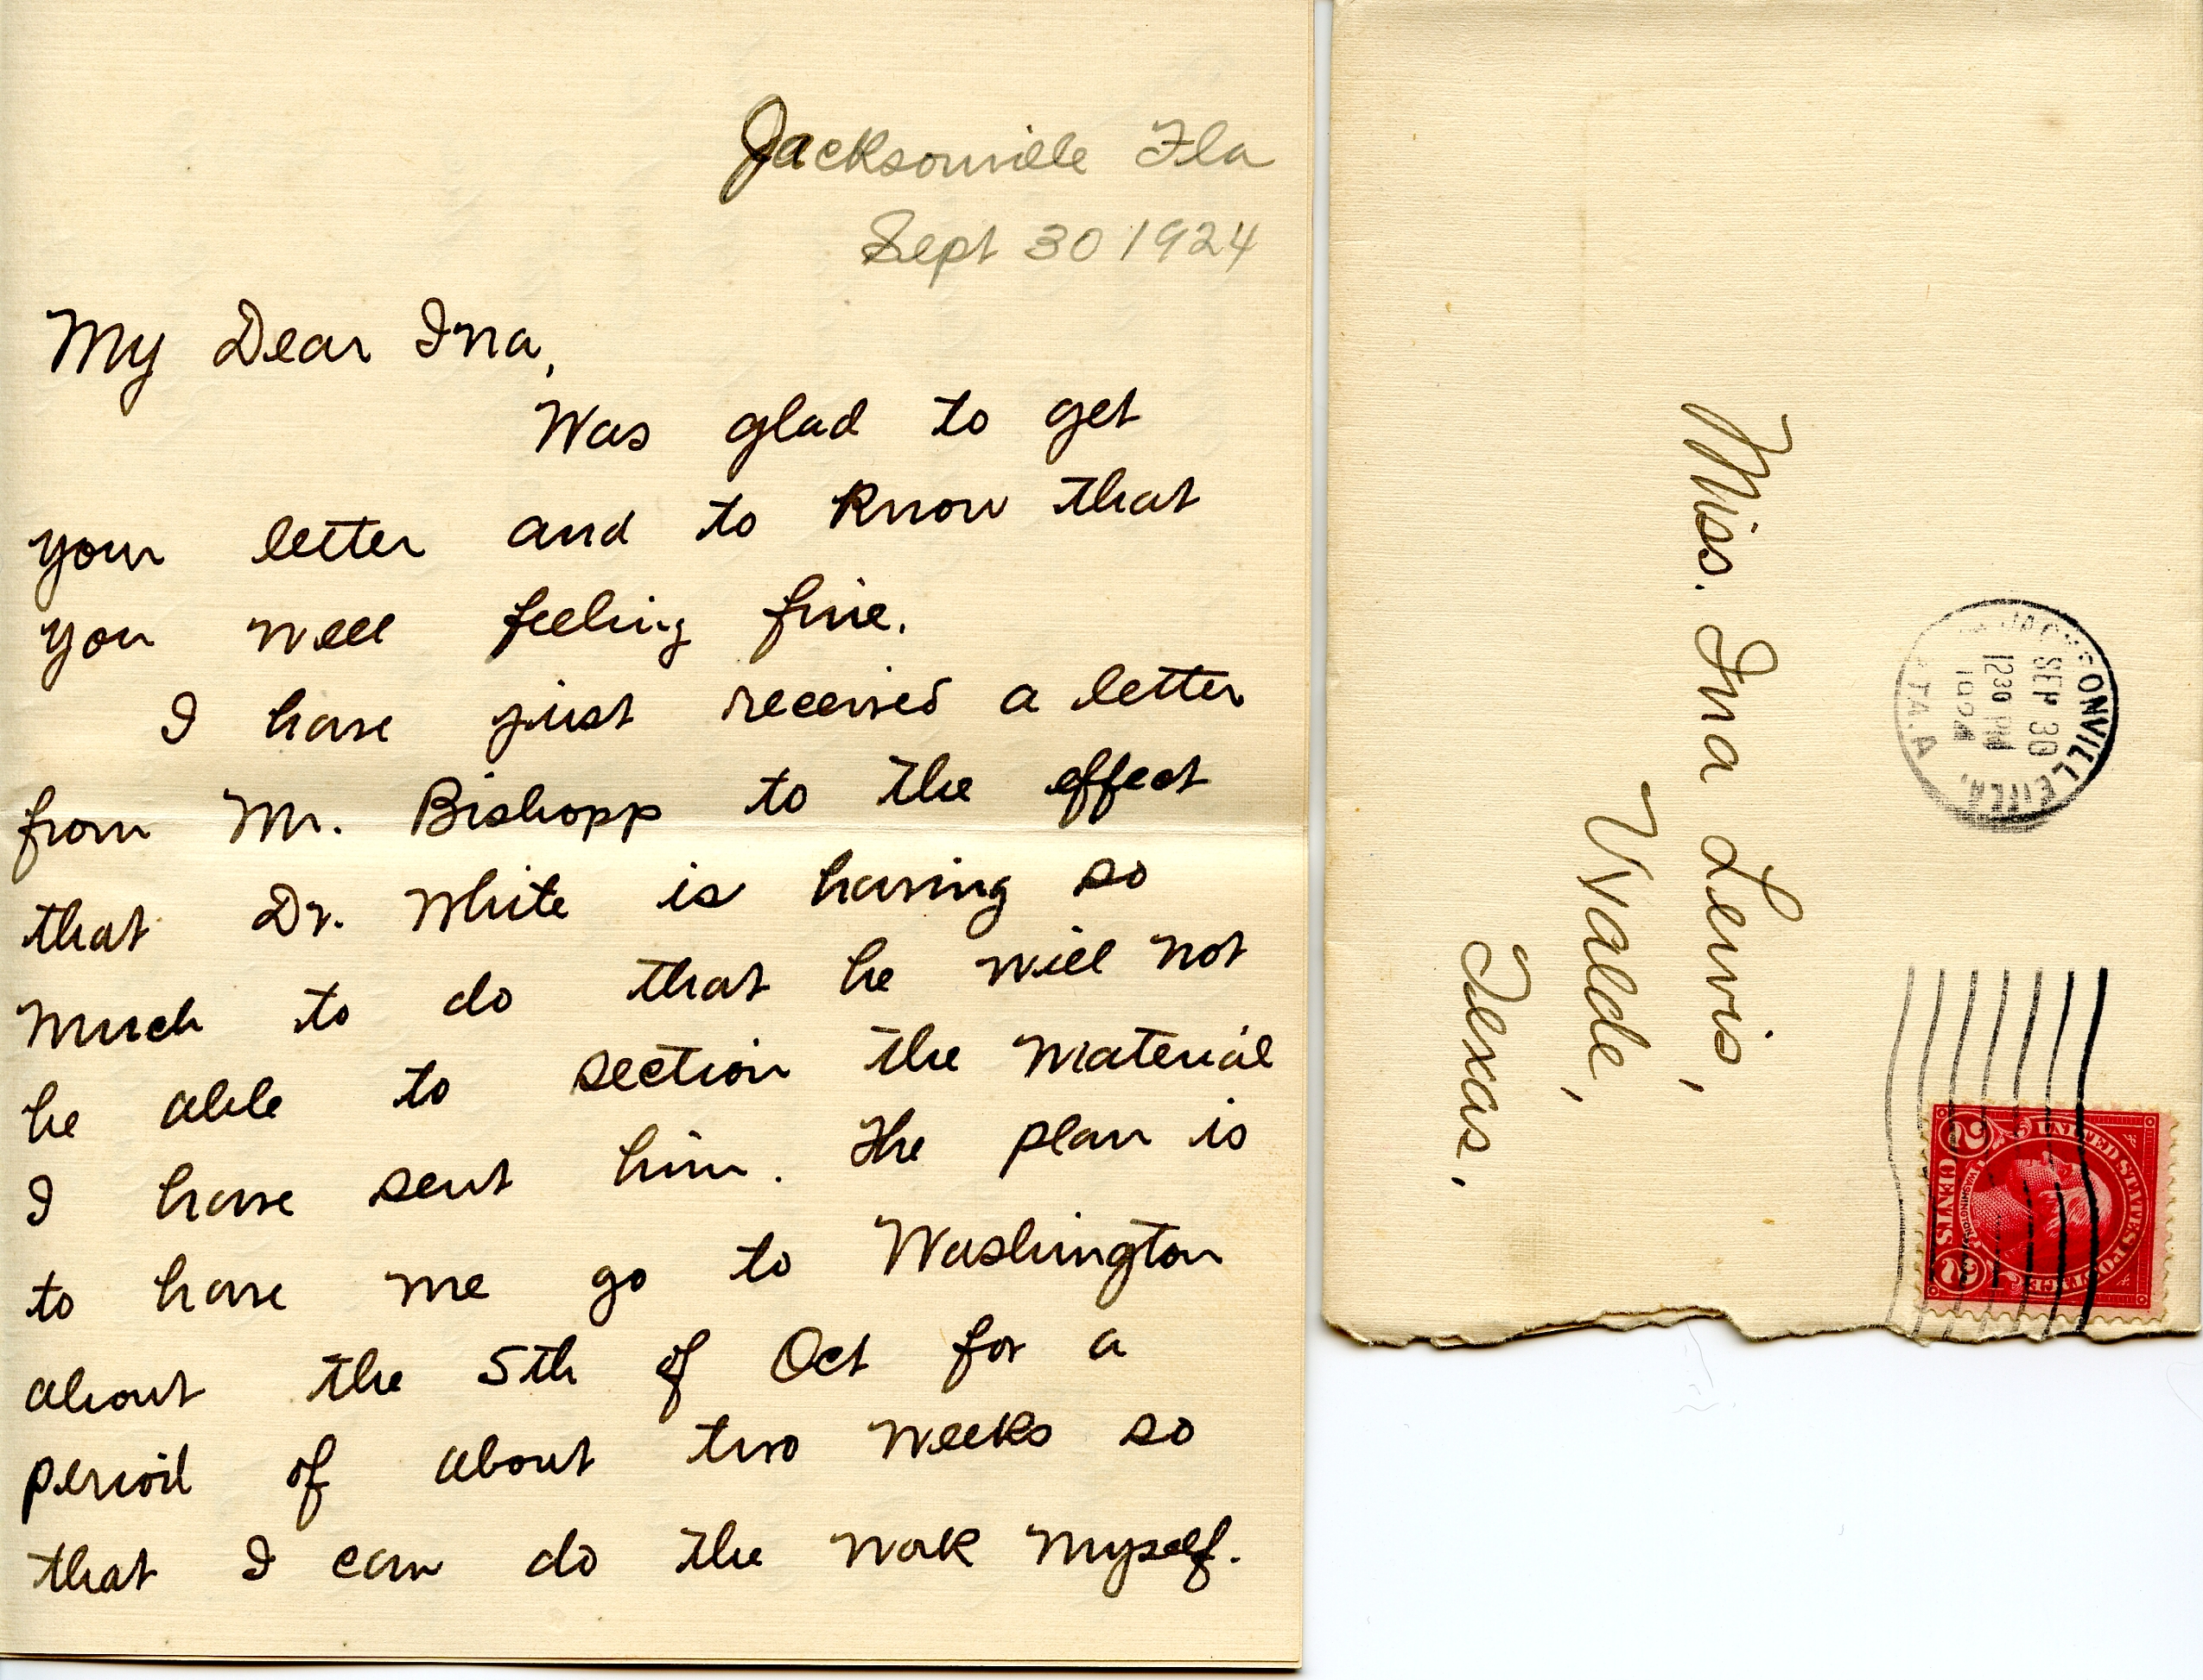 Jacksonville Fla
Sept 30 1924
My Dear Ina,
Was glad to get
your letter and to know that
you well feeling fine.
I have just received a letter
from Mr. Bishopp to the effect
that Dr. White is having so
much to do that he will not
be able to section the material
I have sent him. The plan is
to have me go to Washington
about the 5th of Oct for a
period of about two weeks so
that I can do the work myself.
Miss. Ina Lewis,
Uvalde,
Texas.
JACKSONVILLE, FLA.
SEP 30
1230 PM
1924
STA. A
UNITED STATES POSTAGE
WASHINGTON
2 CENTS 2